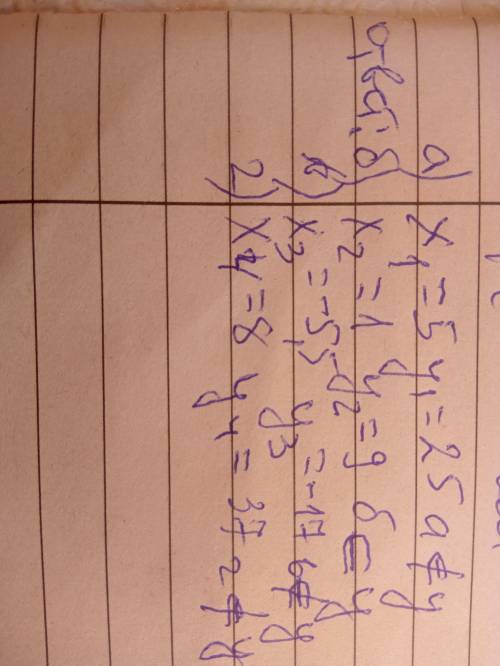 а) x1 = 5 y1 = 25 а ∉ y
б) x2 = 1 y2 = 9 б ∈ y
в) x3 = -5,5 y3 = -17 в ∉ y
г) x4 = 8 y4 = 37 г ∉ y